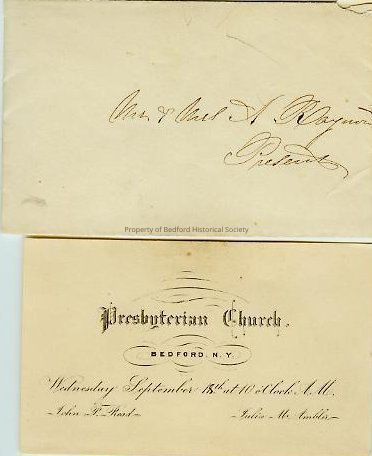 Mr & Mrs A Raymon
Present
Property of Bedford Historical Society
Presbyterian Church.
BEDFORD, N.Y.
Wednesday September 18th at 10 o'Clock A.M.
John F. Read
Julia Mc Ambler